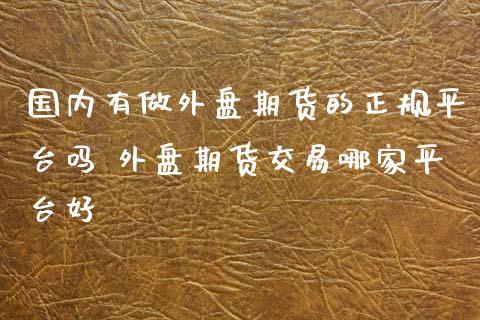 国内有做外盘期货的正规平
台吗 外盘期货交易哪家平
台好